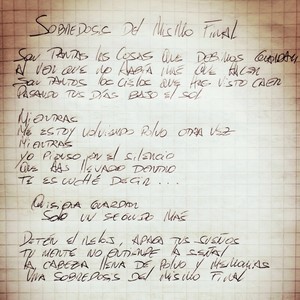 SOBREDOSIS DEL MISMO FINAL
SON TANTAS LAS COSAS QUE DEBIMOS GUARDAR
AL VER QUE NO HABÍA MÁS QUE HACER
SON TANTOS LOS CIELOS QUE HAS VISTO CAER
PASANDO TUS DÍAS BAJO EL SOL
MIENTRAS
ME ESTOY VOLVIENDO POLVO OTRA VEZ
MIENTRAS
YO PIENSO EN EL SILENCIO
QUE HAS LLEVADO DENTRO
TE ESCUCHÉ DECIR ...
QUISIERA GUARDAR
SOLO UN SEGUNDO MÁS
DETÉN EL RELOJ, APAGA TUS SUEÑOS
TU MENTE NO ENTIENDE LA SEÑAL
LA CABEZA LLENA DE POLVO Y MEMORIAS
UNA SOBREDOSIS DEL MISMO FINAL